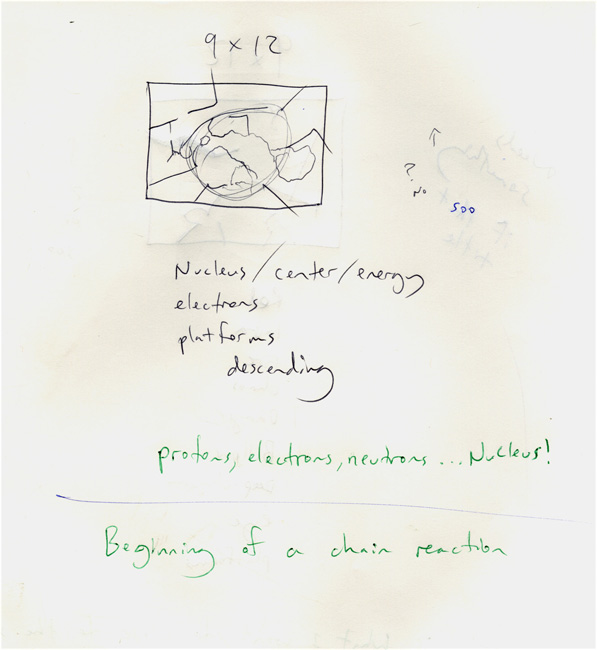 9 x 12
?
NO
500
Nucleus/center/energy
electrons
platforms
descending
protons, electrons, neutrons...Nucleus!
Beginning of a chain reaction